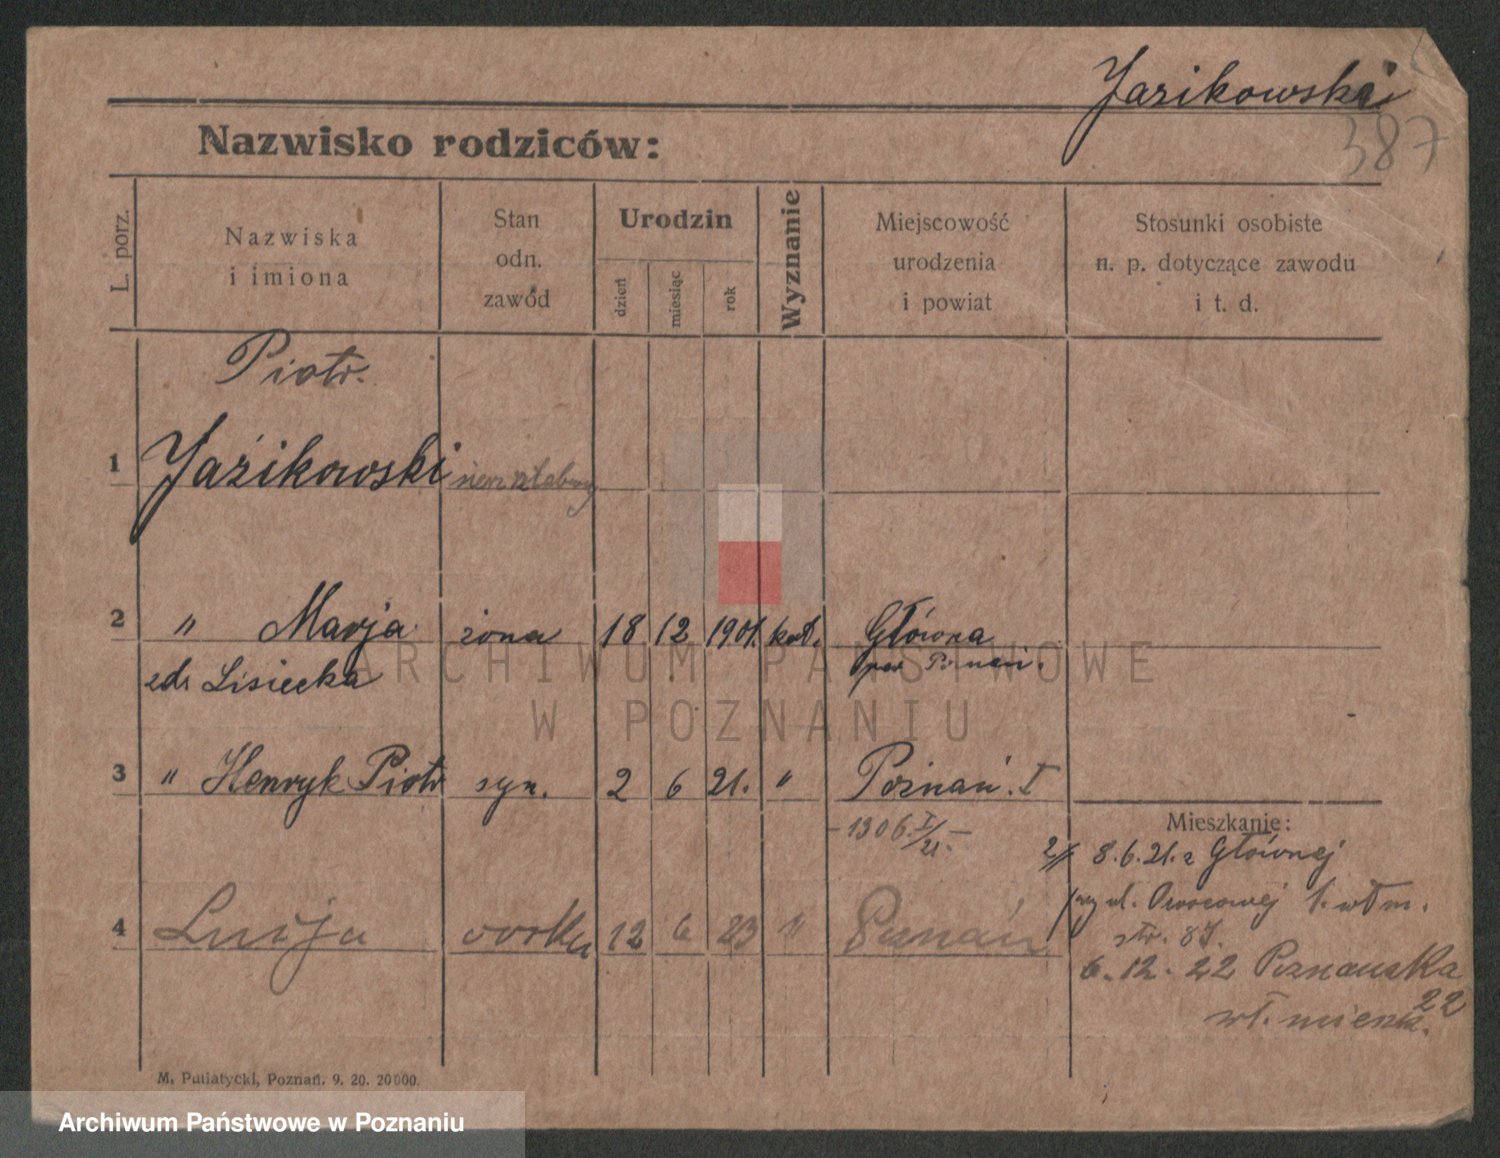 Jazikowski
387
Nazwisko rodziców:
L. porz.
Nazwiska
i imiona
Stan
odn.
zawód
Urodzin
dzień
miesiąc
rok
Wyznanie
Miejscowość
urodzenia
i powiat
Stosunki osobiste
n. p. dotyczące zawodu
i t. d.
Piotr.
1 Jaźikowski
2 " Marja żona 18 12 1901. kat. Główna
zd. Lisiecka pow. Poznań.
3 " Henryk Piotr syn. 2 6 21. " Poznań. I
- 1306 I/21. -
Mieszkanie:
8.6.21. z Głównej
ul. Owocowej 1. wł m.
str. 87.
4 Łucja córka 12 6 23 " Poznań
6.12.22 Poznańska
22
wł. mieszk.
M. Putiatycki, Poznań. 9. 20. 20000.
ARCHIWUM PAŃSTWOWE
W POZNANIU
Archiwum Państwowe w Poznaniu